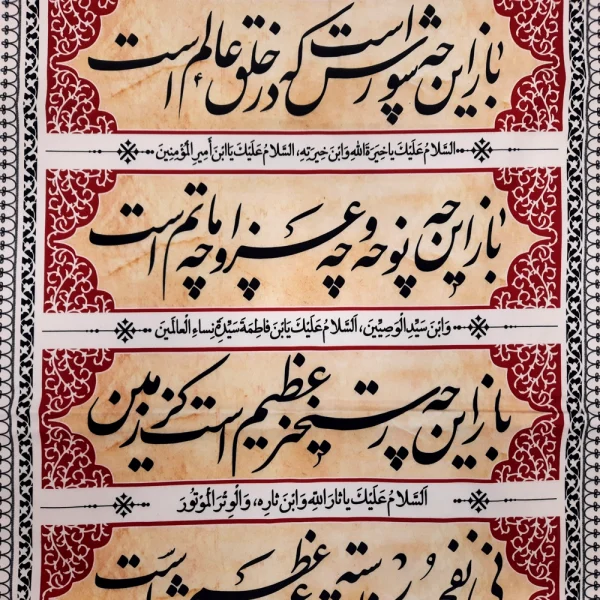 باز این چه شورش است که در خلق عالم است
السَّلامُ عَلَيْكَ يا خِيَرَةَ اللهِ وَابْنَ خِيَرَتِهِ، السَّلامُ عَلَيْكَ يَا ابْنَ أَمِيرِ الْمُؤْمِنِينَ
باز این چه نوحه و چه عزا و چه ماتم است
وَابْنَ سَيِّدِ الْوَصِيِّينَ، اَلسَّلامُ عَلَيْكَ يَابْنَ فاطِمَةَ سَيِّدَةِ نِساءِ الْعالَمينَ
باز این چه رستخیز عظیم است کز زمین
اَلسَّلامُ عَلَيْكَ يا ثارَ اللهِ وَابْنَ ثارِهِ، وَالْوِتْرَ الْمَوْتُورَ